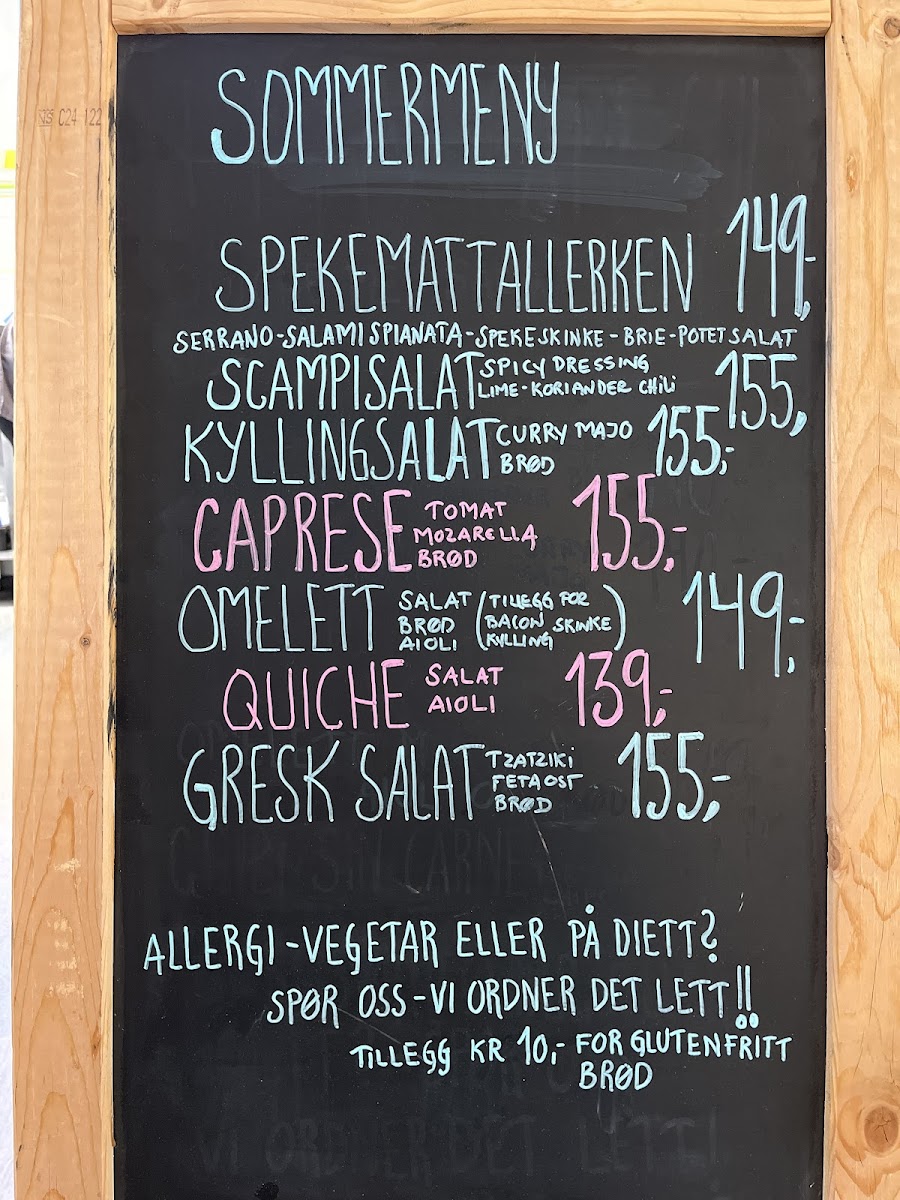 C24 122
SOMMERMENY
SPEKEMATTALLERKEN 149,-
SERRANO-SALAMI SPIANATA-SPEKESKINKE-BRIE-POTETSALAT
SCAMPISALAT SPICY DRESSING 155,
LIME-KORIANDER CHILI
KYLLINGSALAT CURRY MAJO 155,-
BRØD
CAPRESE TOMAT 155,-
MOZARELLA
BRØD
OMELETT SALAT (TILLEGG FOR 149,-
BRØD BACON SKINKE
AIOLI KYLLING)
QUICHE SALAT 139,-
AIOLI
GRESK SALAT TZATZIKI 155,-
FETAOST
BRØD
ALLERGI-VEGETAR ELLER PÅ DIETT?
SPØR OSS-VI ORDNER DET LETT!!
TILLEGG KR 10,- FOR GLUTENFRITT
BRØD
VI ORDNER DET LETT!